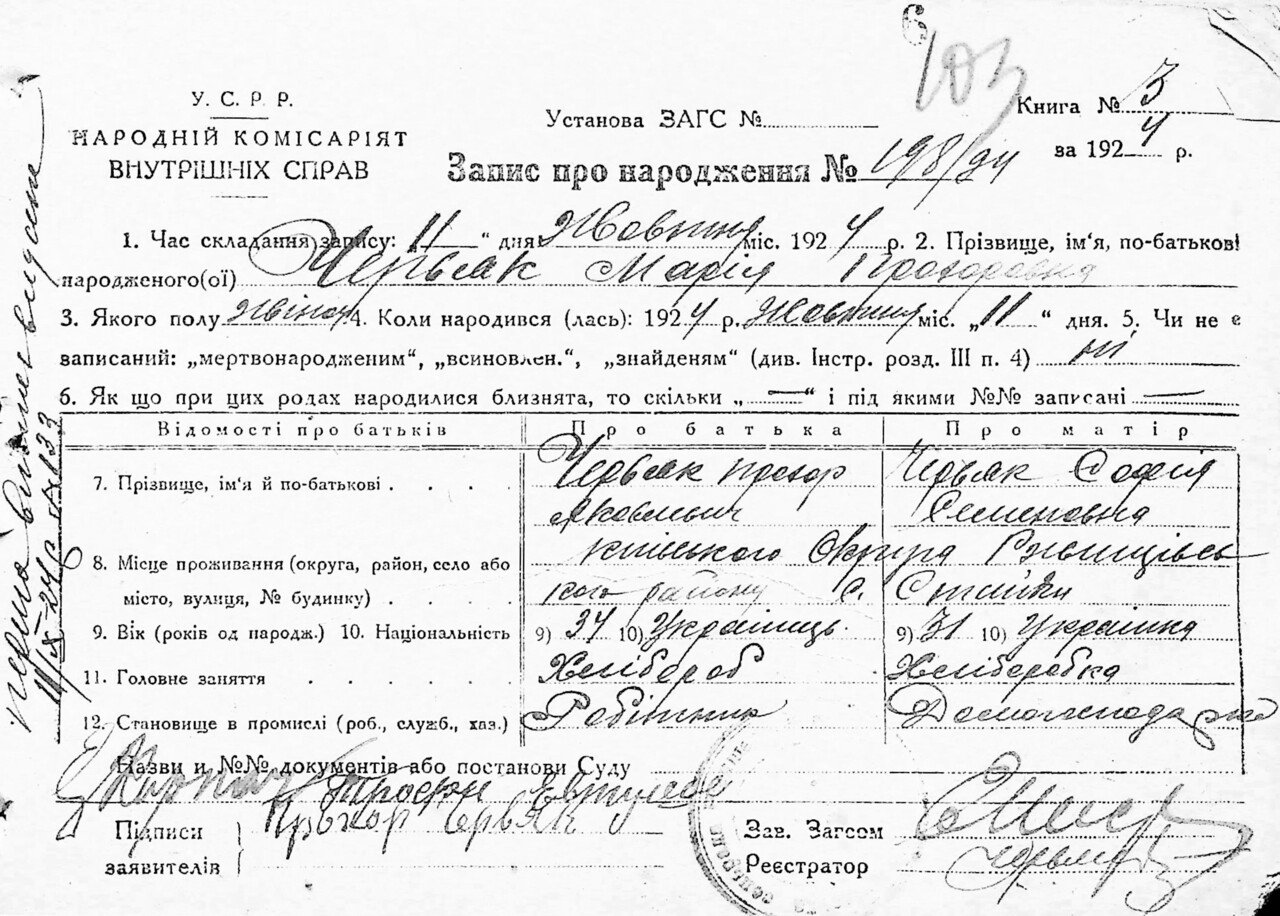 6
103
У. С. Р. Р.
НАРОДНІЙ КОМІСАРІЯТ
ВНУТРІШНІХ СПРАВ
Установа ЗАГС №
Книга № 3
за 1924 р.
Запис про народження № 198/94
1. Час складання запису: „11“ дня: Жовтня міс. 1924 р. 2. Прізвище, ім'я, по-батькові
народженого(ої) Червьяк Марія Прохоровна
3. Якого полу жіноч 4. Коли народився (лась): 1924 р. Жовтня міс. „11“ дня. 5. Чи не є
записаний: „мертвонародженим“, „всиновлен.“, „знайденям“ (див. Інстр. розд. III п. 4) ні
6. Як що при цих родах народилися близнята, то скільки „—“ і під якими №№ записані —
Відомості про батьків Про батька Про матір
7. Прізвище, ім'я й по-батькові . . . . Червьяк Прохор Червьяк Софія
Яковлевич Семеновна
8. Місце проживання (округа, район, село або київського Округа Ржищівсь
місто, вулиця, № будинку) . . . . . кого району С. Стайки
9. Вік (років од народж.) 10. Національність 9) 34 10) Українець 9) 31 10) Українка
11. Головне заняття . . . . . Хлібороб Хліборобка
12. Становище в промислі (роб., служб., хаз.) Робітник Домогосподарка
Назви и №№ документів або постанови Суду
Трофим
Підписи Прохор Червьяк
заявителів
Зав. Загсом
Реєстратор